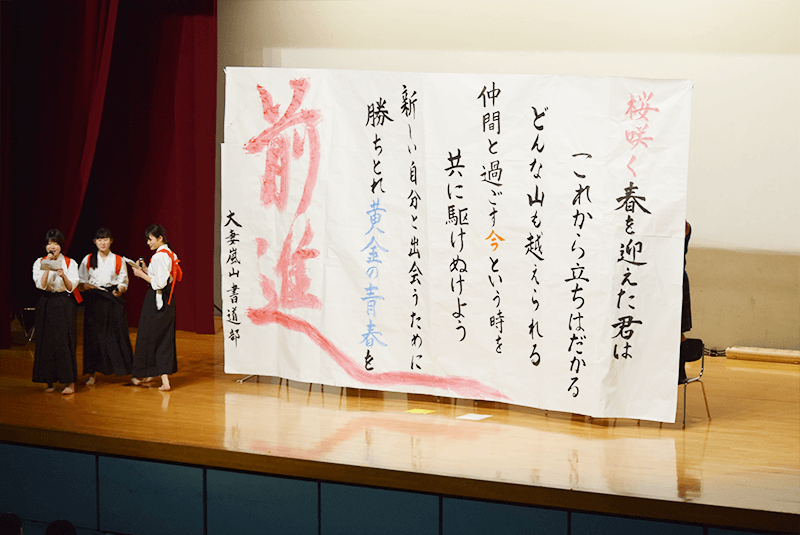 桜咲く春を迎えた君は
これから立ちはだかる
どんな山も越えられる
仲間と過ごす今という時を
共に駆けぬけよう
新しい自分と出会うために
勝ちとれ黄金の青春を
前進
大妻嵐山書道部